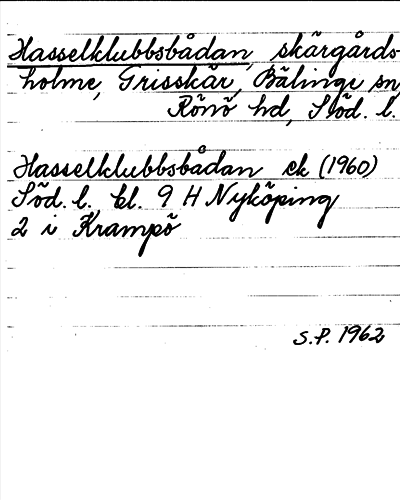 Hasselklubbsbådan, skärgårds-
holme, Grisskär, Bälinge sn,
Rönö hd, Söd. l.
Hasselklubbsbådan ek (1960)
Söd. l. bl. 9 H Nyköping
2 i Krampö
S.P. 1962